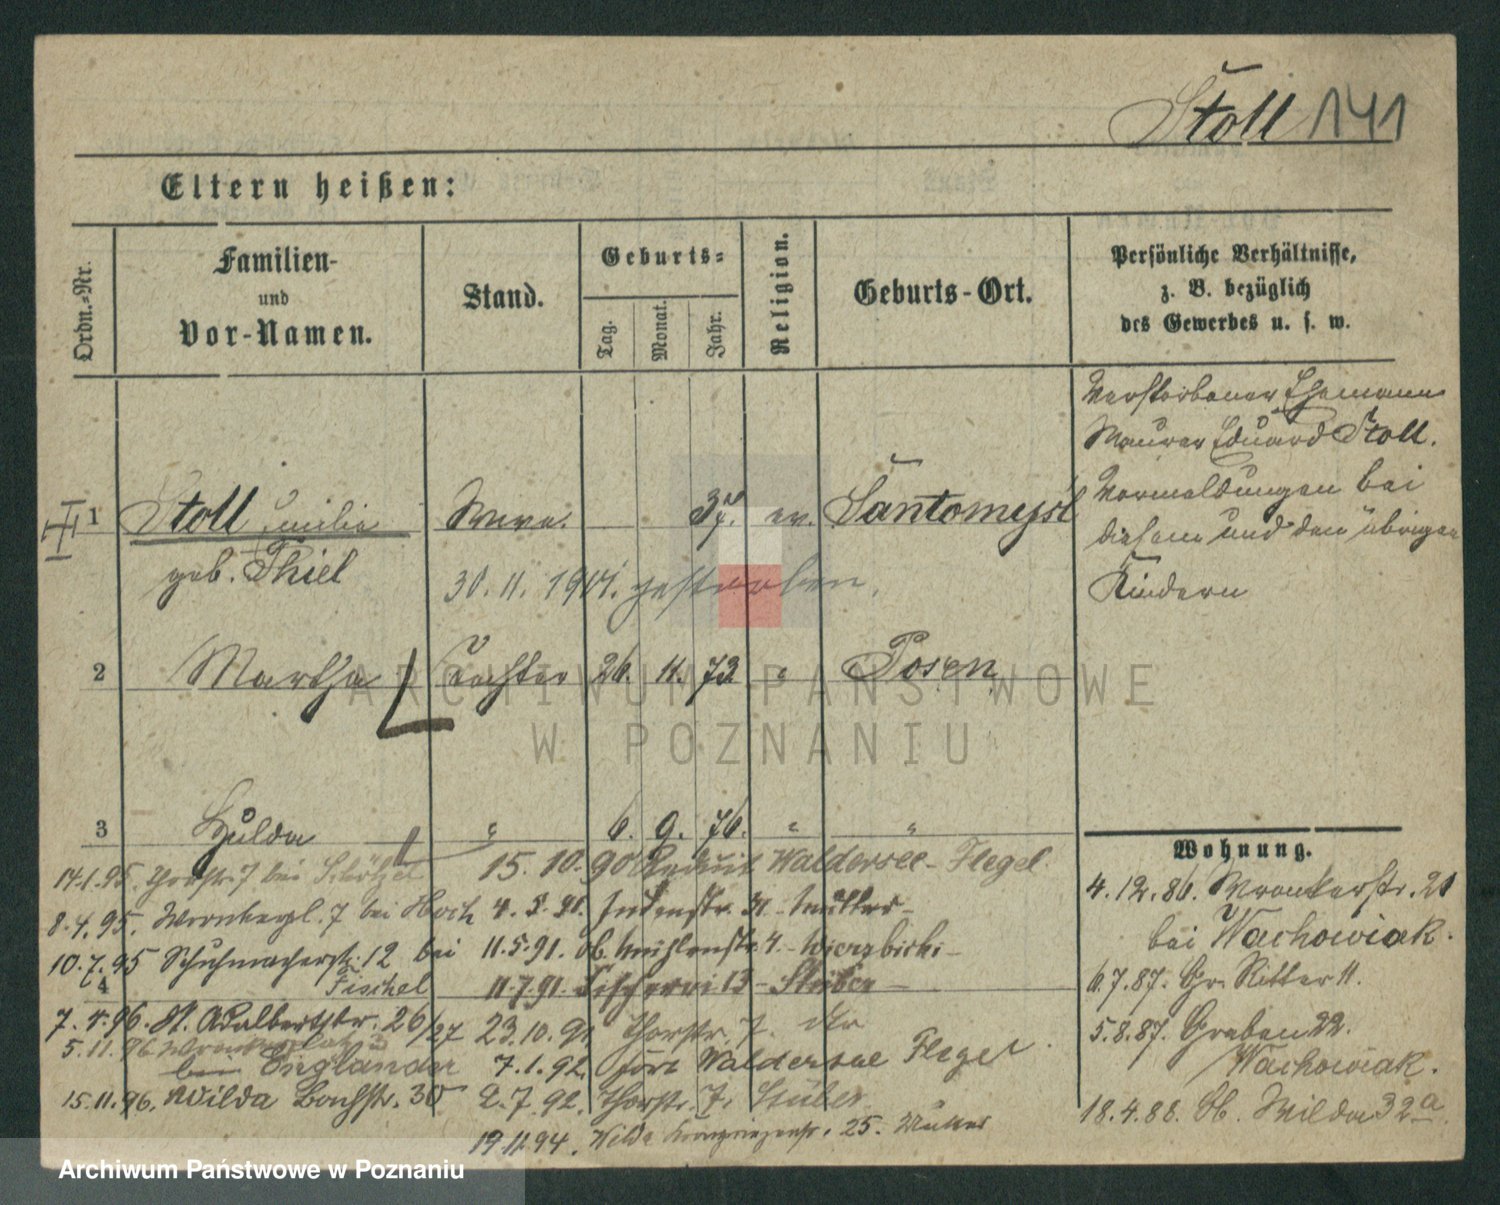 Stoll 141
Eltern heißen:
Ordn.-Nr.
Familien-
und
Vor-Namen.
Stand.
Geburts-
Tag.
Monat.
Jahr.
Religion.
Geburts-Ort.
Persönliche Verhältnisse,
z. B. bezüglich
des Gewerbes u. s. w.
Verstorbener Ehemann
Maurer Eduard Stoll.
Vormeldungen bei
diesem und den übrigen
Kindern
1 Stoll Emilie Wwe. 37. ev. Santomysl
geb. Thiel
30. 11. 1901. gestorben.
2 Martha Tochter 26. 11. 73 " Posen
ARCHIWUM PAŃSTWOWE
W POZNANIU
3 Hulda " 6. 9. 76. " "
Wohnung.
4.12.86. Wronkerstr. 21
bei Wachowiak.
6.7.87. Gr. Ritter 11.
5.8.87. Graben 22.
Wachowiak.
18.4.88. Ob. Wilda 32a.
14.1.95. Thorstr. 7 bei
8.4.95. 7 bei Hoch
10.7.95 Schuhmacherstr. 12 bei
4 Fischel
7. 4. 96. St. Adalbertstr. 26/27
5.11.96
bei Engländer
15.11.96. Wilda Bachstr. 30
15. 10. 90 Reduit Waldersee - Flegel.
4. 3. 91. Judenstr. 31 - Mutter -
11.5.91. Ob. Mühlenstr. 4. - Wierzbicki -
11.7.91. Fischerei 13 - Stüber -
23.10.91. Thorstr. 7. Str
7.1.92. Fort Waldersee Flegel.
2.7.92. Thorstr. 7. Stüber
19.11.94. Wilda Kronprinzenstr. 25. Mutter
Archiwum Państwowe w Poznaniu